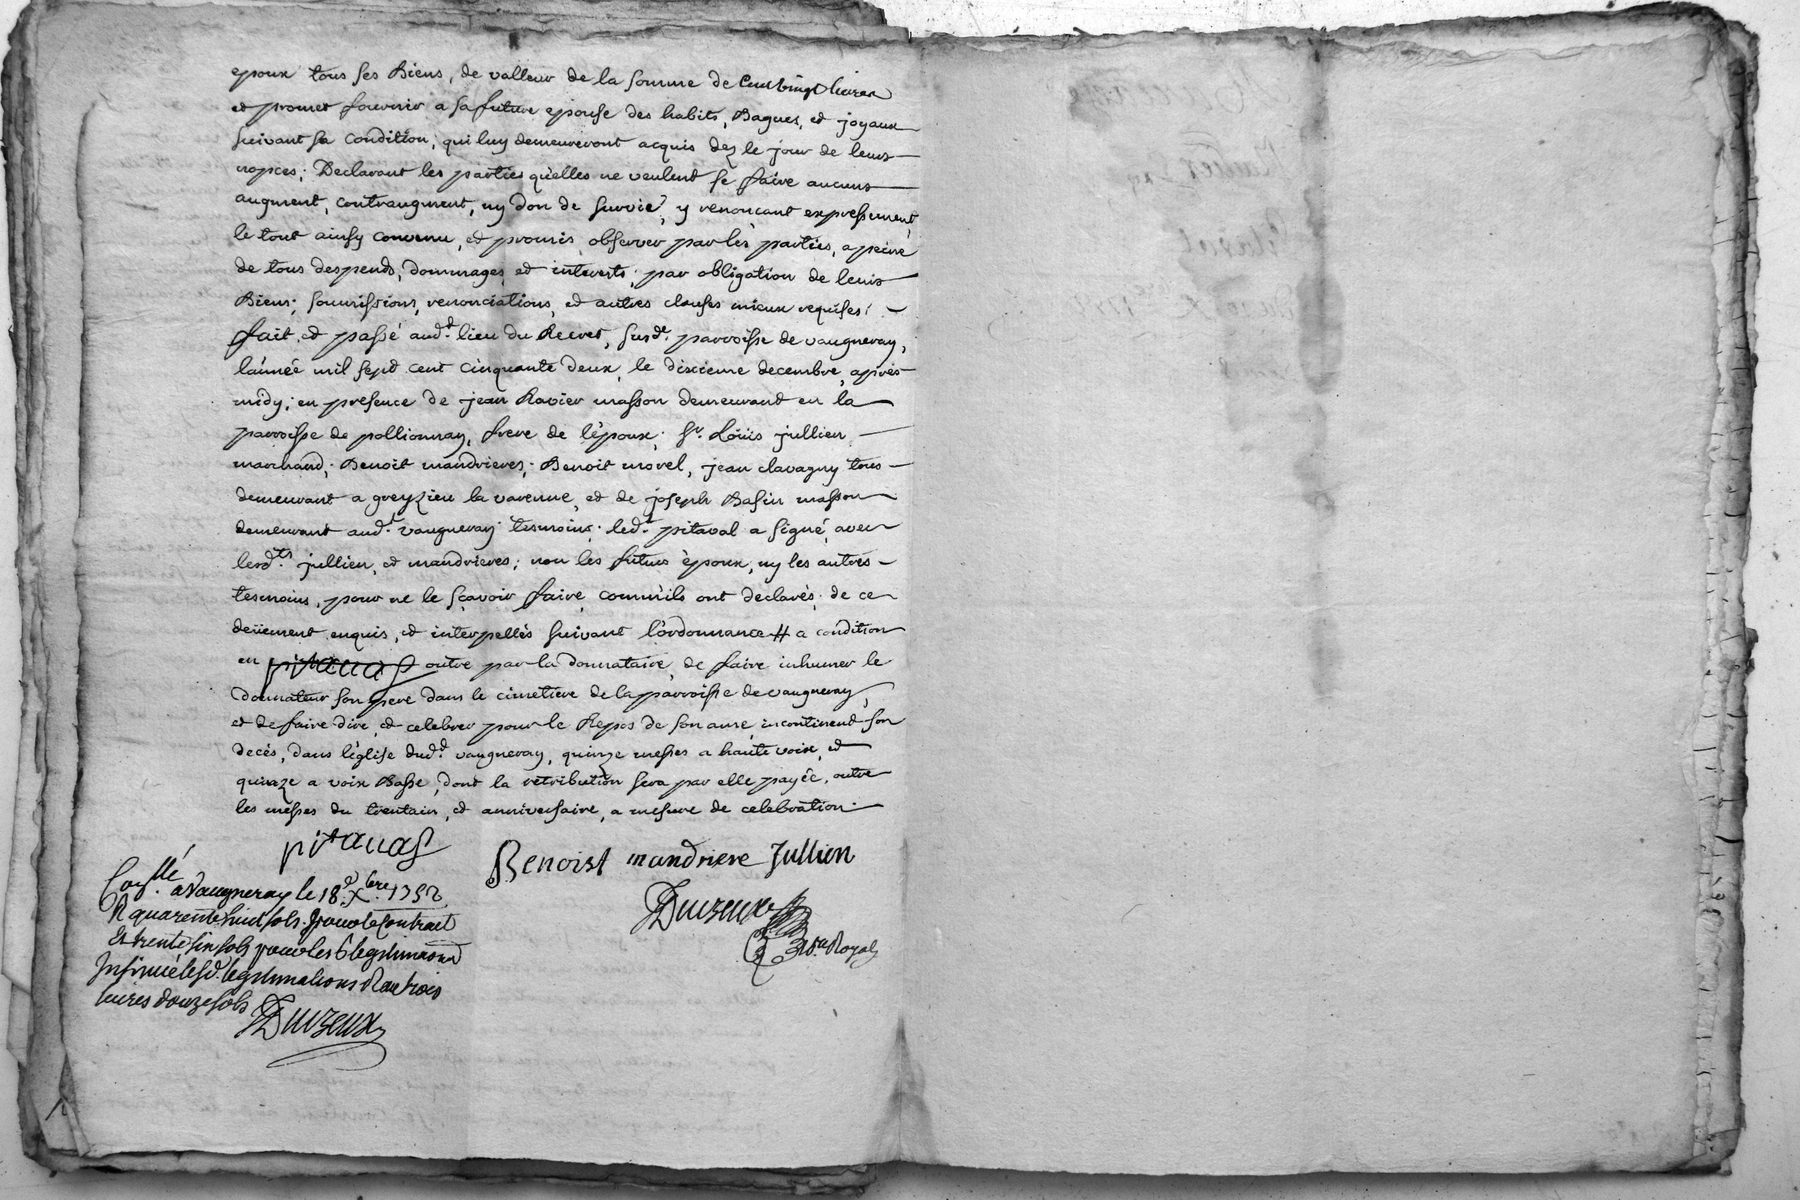 epoux tous ses Biens, de valleur de la somme de Cent vingt livres
et promet fournir a sa future epouse des habits, Bagues, et joyaux
suivant sa condition, qui luy demeureront acquis dez le jour de leurs
nopces; Declarant les parties qu'elles ne veulent se faire aucuns
augment, contraugment, ny don de survie, y renoncant expressement,
le tout ainsy convenu, et promis observer par lés parties, a peine
de tous despends, dommages et interests; par obligation de leurs
Biens, soumissions, renonciations, et autres clauses mieux requises;
fait, et passé aud.t lieu du Recret, susd.e parroisse de vaugneray,
l'année mil sept cent cinquante deux, le dixieme decembre, aprés
midy; en presence de jean Ravier masson demeurant en la
parroisse de pollionnay, frere de l'époux; S.r Loüis jullien
marchand; Benoit mandrieres; Benoit morel, jean clavagny tous
demeurant a greyzieu la varenne, et de joseph Basin masson
demeurant aud.t vaugneray tesmoins; led.t pitaval a signé, avec
lesd.ts jullien, et mandrieres; non les futurs époux, ny les autres
tesmoins, pour ne le sçavoir faire, comm'ils ont declarés, de ce
deüement enquis, et interpellés suivant l'ordonnance # a condition
en pitaval outre par la donnataire, de faire inhumer le
Donnateur son pere dans le cimetiere de la parroisse de vaugneray,
et de faire dire, et celebrer pour le Repos de son ame, incontinend son
decés, dans l'église dud.t vaugneray, quinze messes a haute voix, et
quinze a voix Basse, dont la retribution sera par elle payée, outre
les messes du trentain, et anniversaire, a mesure de celebration
pitaval
Benoist mandriere Jullien
Duizeux
N.re Royal
Con.llé a Vaugneray le 18.e X.bre 1752
R quarente huit sols pour le Contract
Et trente six sols pour les 6 legitimaons
Insinué lesd. legitimations R autrois
livres douze sols
Duizeux